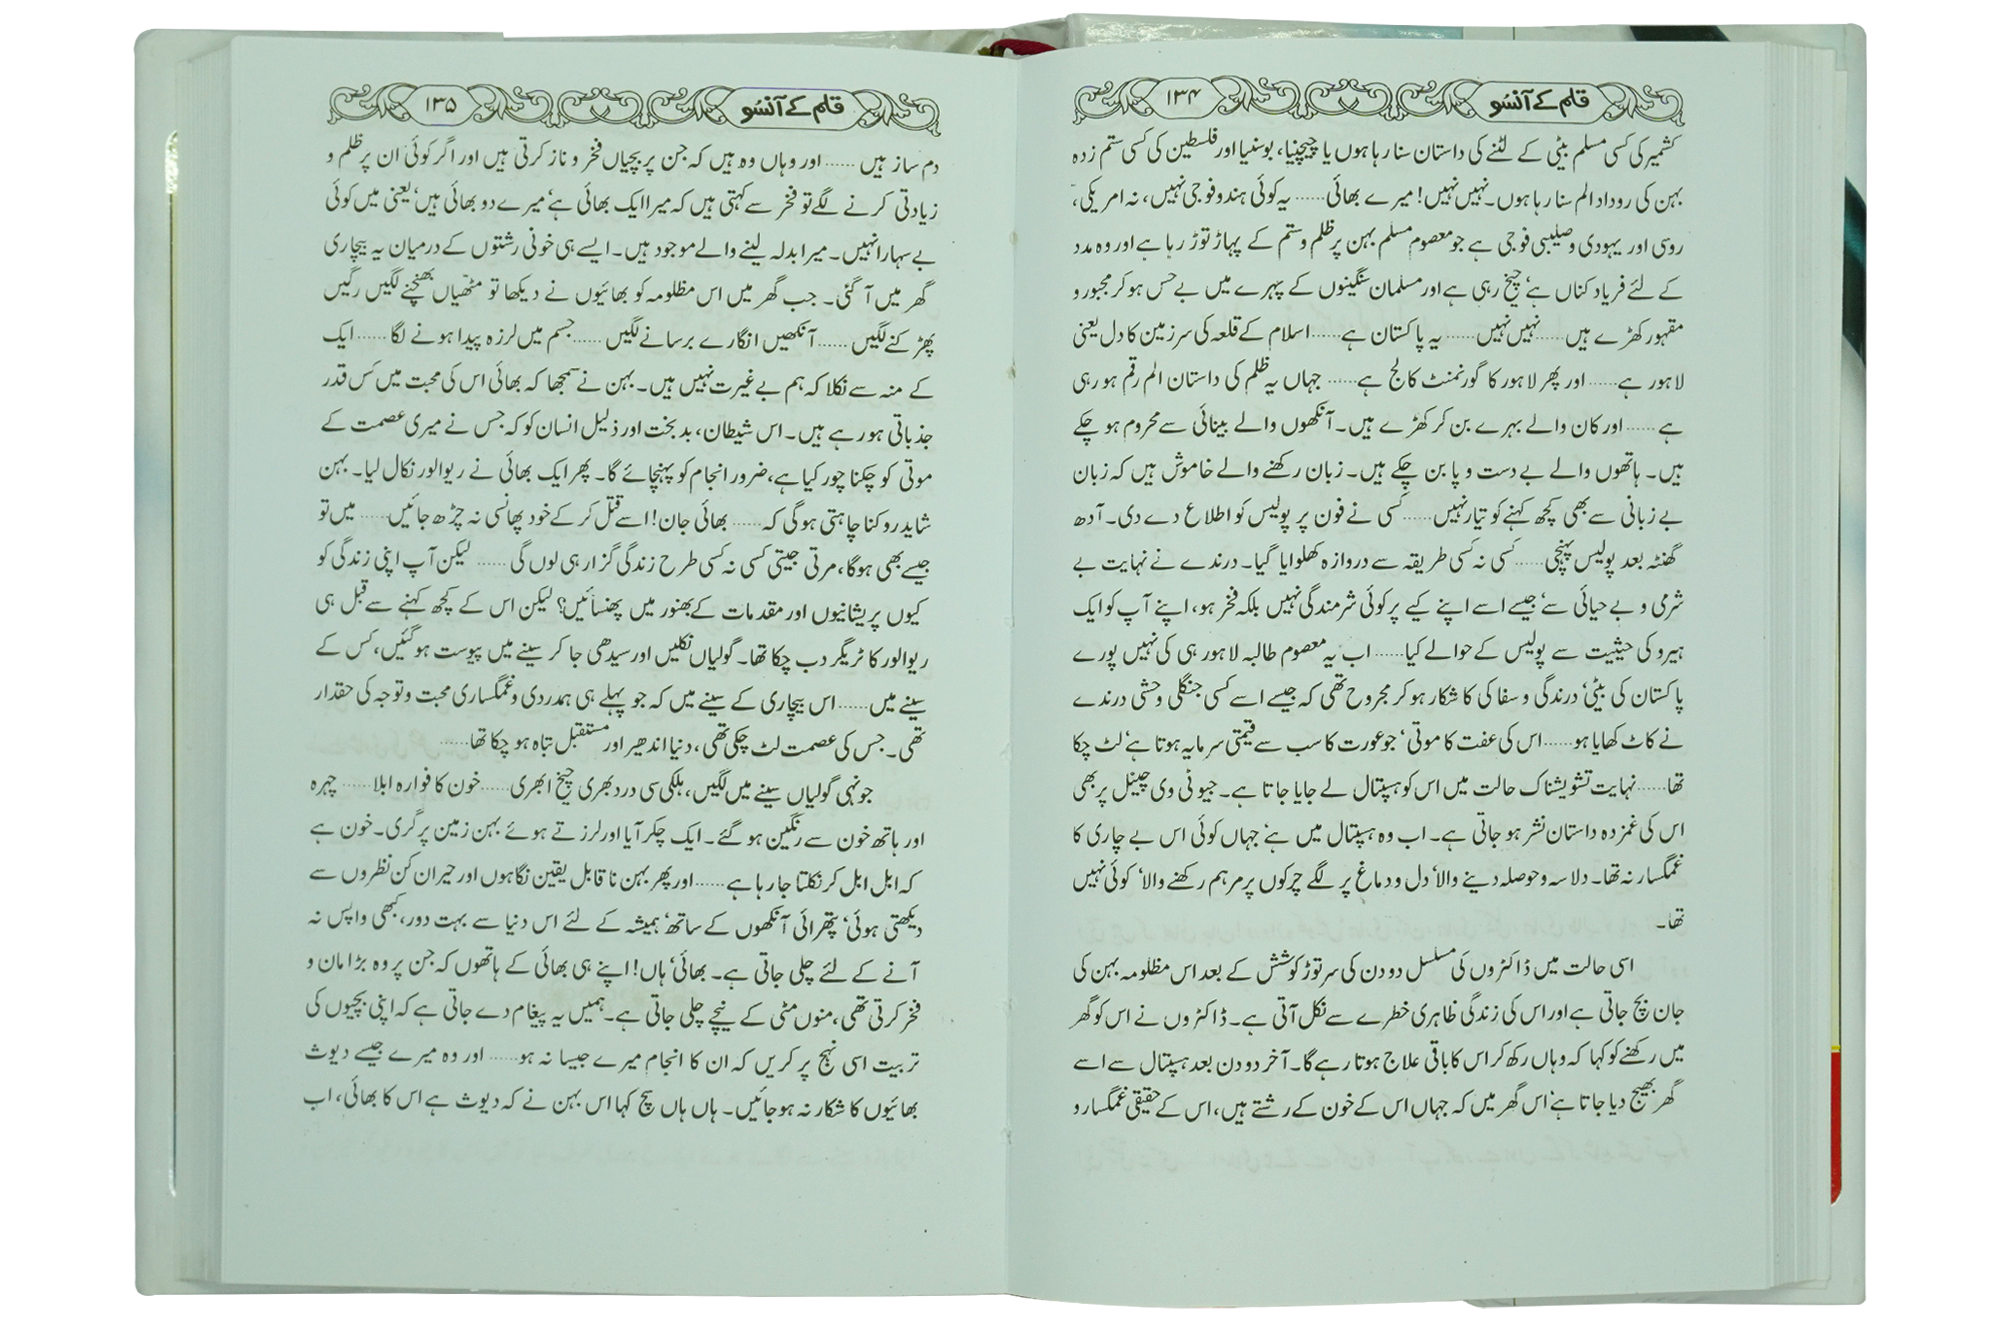 قلم کے آنسو ۱۳۴
کشمیر کی کسی مسلم بیٹی کے لٹنے کی داستان سنا رہا ہوں یا چیچنیا، بوسنیا اور فلسطین کی کسی ستم زدہ
بہن کی روداد الم سنا رہا ہوں۔ نہیں نہیں! میرے بھائی...... یہ کوئی ہندو فوجی نہیں، نہ امریکی،
روسی اور یہودی و صلیبی فوجی ہے جو معصوم مسلم بہن پر ظلم و ستم کے پہاڑ توڑ رہا ہے اور وہ مدد
کے لئے فریاد کناں ہے‘ چیخ رہی ہے اور مسلمان سنگینوں کے پہرے میں بے حس ہو کر مجبور و
مقہور کھڑے ہیں...... نہیں نہیں...... یہ پاکستان ہے...... اسلام کے قلعہ کی سرزمین کا دل یعنی
لاہور ہے...... اور پھر لاہور کا گورنمنٹ کالج ہے...... جہاں یہ ظلم کی داستان الم رقم ہو رہی
ہے...... اور کان والے بہرے بن کر کھڑے ہیں۔ آنکھوں والے بینائی سے محروم ہو چکے
ہیں۔ ہاتھوں والے بے دست و پا بن چکے ہیں۔ زبان رکھنے والے خاموش ہیں کہ زبان
بے زبانی سے بھی کچھ کہنے کو تیار نہیں...... کسی نے فون پر پولیس کو اطلاع دے دی۔ آدھ
گھنٹہ بعد پولیس پہنچی...... کسی نہ کسی طریقہ سے دروازہ کھلوایا گیا۔ درندے نے نہایت بے
شرمی و بے حیائی سے‘ جیسے اسے اپنے کیے پر کوئی شرمندگی نہیں بلکہ فخر ہو، اپنے آپ کو ایک
ہیرو کی حیثیت سے پولیس کے حوالے کیا...... اب یہ معصوم طالبہ لاہور ہی کی نہیں پورے
پاکستان کی بیٹی‘ درندگی و سفاکی کا شکار ہو کر مجروح تھی کہ جیسے اسے کسی جنگلی وحشی درندے
نے کاٹ کھایا ہو...... اس کی عفت کا موتی‘ جو عورت کا سب سے قیمتی سرمایہ ہوتا ہے‘ لٹ چکا
تھا...... نہایت تشویشناک حالت میں اس کو ہسپتال لے جایا جاتا ہے۔ جیو ٹی وی چینل پر بھی
اس کی غمزدہ داستان نشر ہو جاتی ہے۔ اب وہ ہسپتال میں ہے‘ جہاں کوئی اس بے چاری کا
غمگسار نہ تھا۔ دلاسہ و حوصلہ دینے والا‘ دل و دماغ پر لگے چرکوں پر مرہم رکھنے والا‘ کوئی نہیں
تھا۔
اسی حالت میں ڈاکٹروں کی مسلسل دو دن کی سر توڑ کوشش کے بعد اس مظلومہ بہن کی
جان بچ جاتی ہے اور اس کی زندگی ظاہری خطرے سے نکل آتی ہے۔ ڈاکٹروں نے اس کو گھر
میں رکھنے کو کہا کہ وہاں رکھ کر اس کا باقی علاج ہوتا رہے گا۔ آخر دو دن بعد ہسپتال سے اسے
گھر بھیج دیا جاتا ہے‘ اس گھر میں کہ جہاں اس کے خون کے رشتے ہیں، اس کے حقیقی غمگسار و
قلم کے آنسو ۱۳۵
دم ساز ہیں...... اور وہاں وہ ہیں کہ جن پر بچیاں فخر و ناز کرتی ہیں اور اگر کوئی ان پر ظلم و
زیادتی کرنے لگے تو فخر سے کہتی ہیں کہ میرا ایک بھائی ہے‘ میرے دو بھائی ہیں‘ یعنی میں کوئی
بے سہارا نہیں۔ میرا بدلہ لینے والے موجود ہیں۔ ایسے ہی خونی رشتوں کے درمیان یہ بیچاری
گھر میں آ گئی۔ جب گھر میں اس مظلومہ کو بھائیوں نے دیکھا تو مٹھیاں بھنچنے لگیں رگیں
پھڑکنے لگیں...... آنکھیں انگارے برسانے لگیں...... جسم میں لرزہ پیدا ہونے لگا...... ایک
کے منہ سے نکلا کہ ہم بے غیرت نہیں ہیں۔ بہن نے سمجھا کہ بھائی اس کی محبت میں کس قدر
جذباتی ہو رہے ہیں۔ اس شیطان، بدبخت اور ذلیل انسان کو کہ جس نے میری عصمت کے
موتی کو چکنا چور کیا ہے، ضرور انجام کو پہنچائے گا۔ پھر ایک بھائی نے ریوالور نکال لیا۔ بہن
شاید روکنا چاہتی ہوگی کہ...... بھائی جان! اسے قتل کر کے خود پھانسی نہ چڑھ جائیں...... میں تو
جیسے بھی ہوگا، مرتی جیتی کسی نہ کسی طرح زندگی گزار ہی لوں گی...... لیکن آپ اپنی زندگی کو
کیوں پریشانیوں اور مقدمات کے بھنور میں پھنسائیں؟ لیکن اس کے کچھ کہنے سے قبل ہی
ریوالور کا ٹریگر دب چکا تھا۔ گولیاں نکلیں اور سیدھی جا کر سینے میں پیوست ہو گئیں، کس کے
سینے میں...... اس بیچاری کے سینے میں کہ جو پہلے ہی ہمدردی و غمگساری محبت و توجہ کی حقدار
تھی۔ جس کی عصمت لٹ چکی تھی، دنیا اندھیر اور مستقبل تباہ ہو چکا تھا......
جونہی گولیاں سینے میں لگیں، ہلکی سی درد بھری چیخ ابھری...... خون کا فوارہ ابلا...... چہرہ
اور ہاتھ خون سے رنگین ہو گئے۔ ایک چکر آیا اور لرزتے ہوئے بہن زمین پر گری۔ خون ہے
کہ ابل ابل کر نکلتا جا رہا ہے...... اور پھر بہن نا قابل یقین نگاہوں اور حیران کن نظروں سے
دیکھتی ہوئی‘ پتھرائی آنکھوں کے ساتھ‘ ہمیشہ کے لئے اس دنیا سے بہت دور، کبھی واپس نہ
آنے کے لئے چلی جاتی ہے۔ بھائی‘ ہاں! اپنے ہی بھائی کے ہاتھوں کہ جن پر وہ بڑا مان و
فخر کرتی تھی، منوں مٹی کے نیچے چلی جاتی ہے۔ ہمیں یہ پیغام دے جاتی ہے کہ اپنی بچیوں کی
تربیت اسی نہج پر کریں کہ ان کا انجام میرے جیسا نہ ہو...... اور وہ میرے جیسے دیوث
بھائیوں کا شکار نہ ہو جائیں۔ ہاں ہاں سچ کہا اس بہن نے کہ دیوث ہے اس کا بھائی، اب